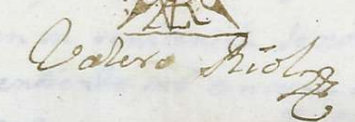 Valero Riol